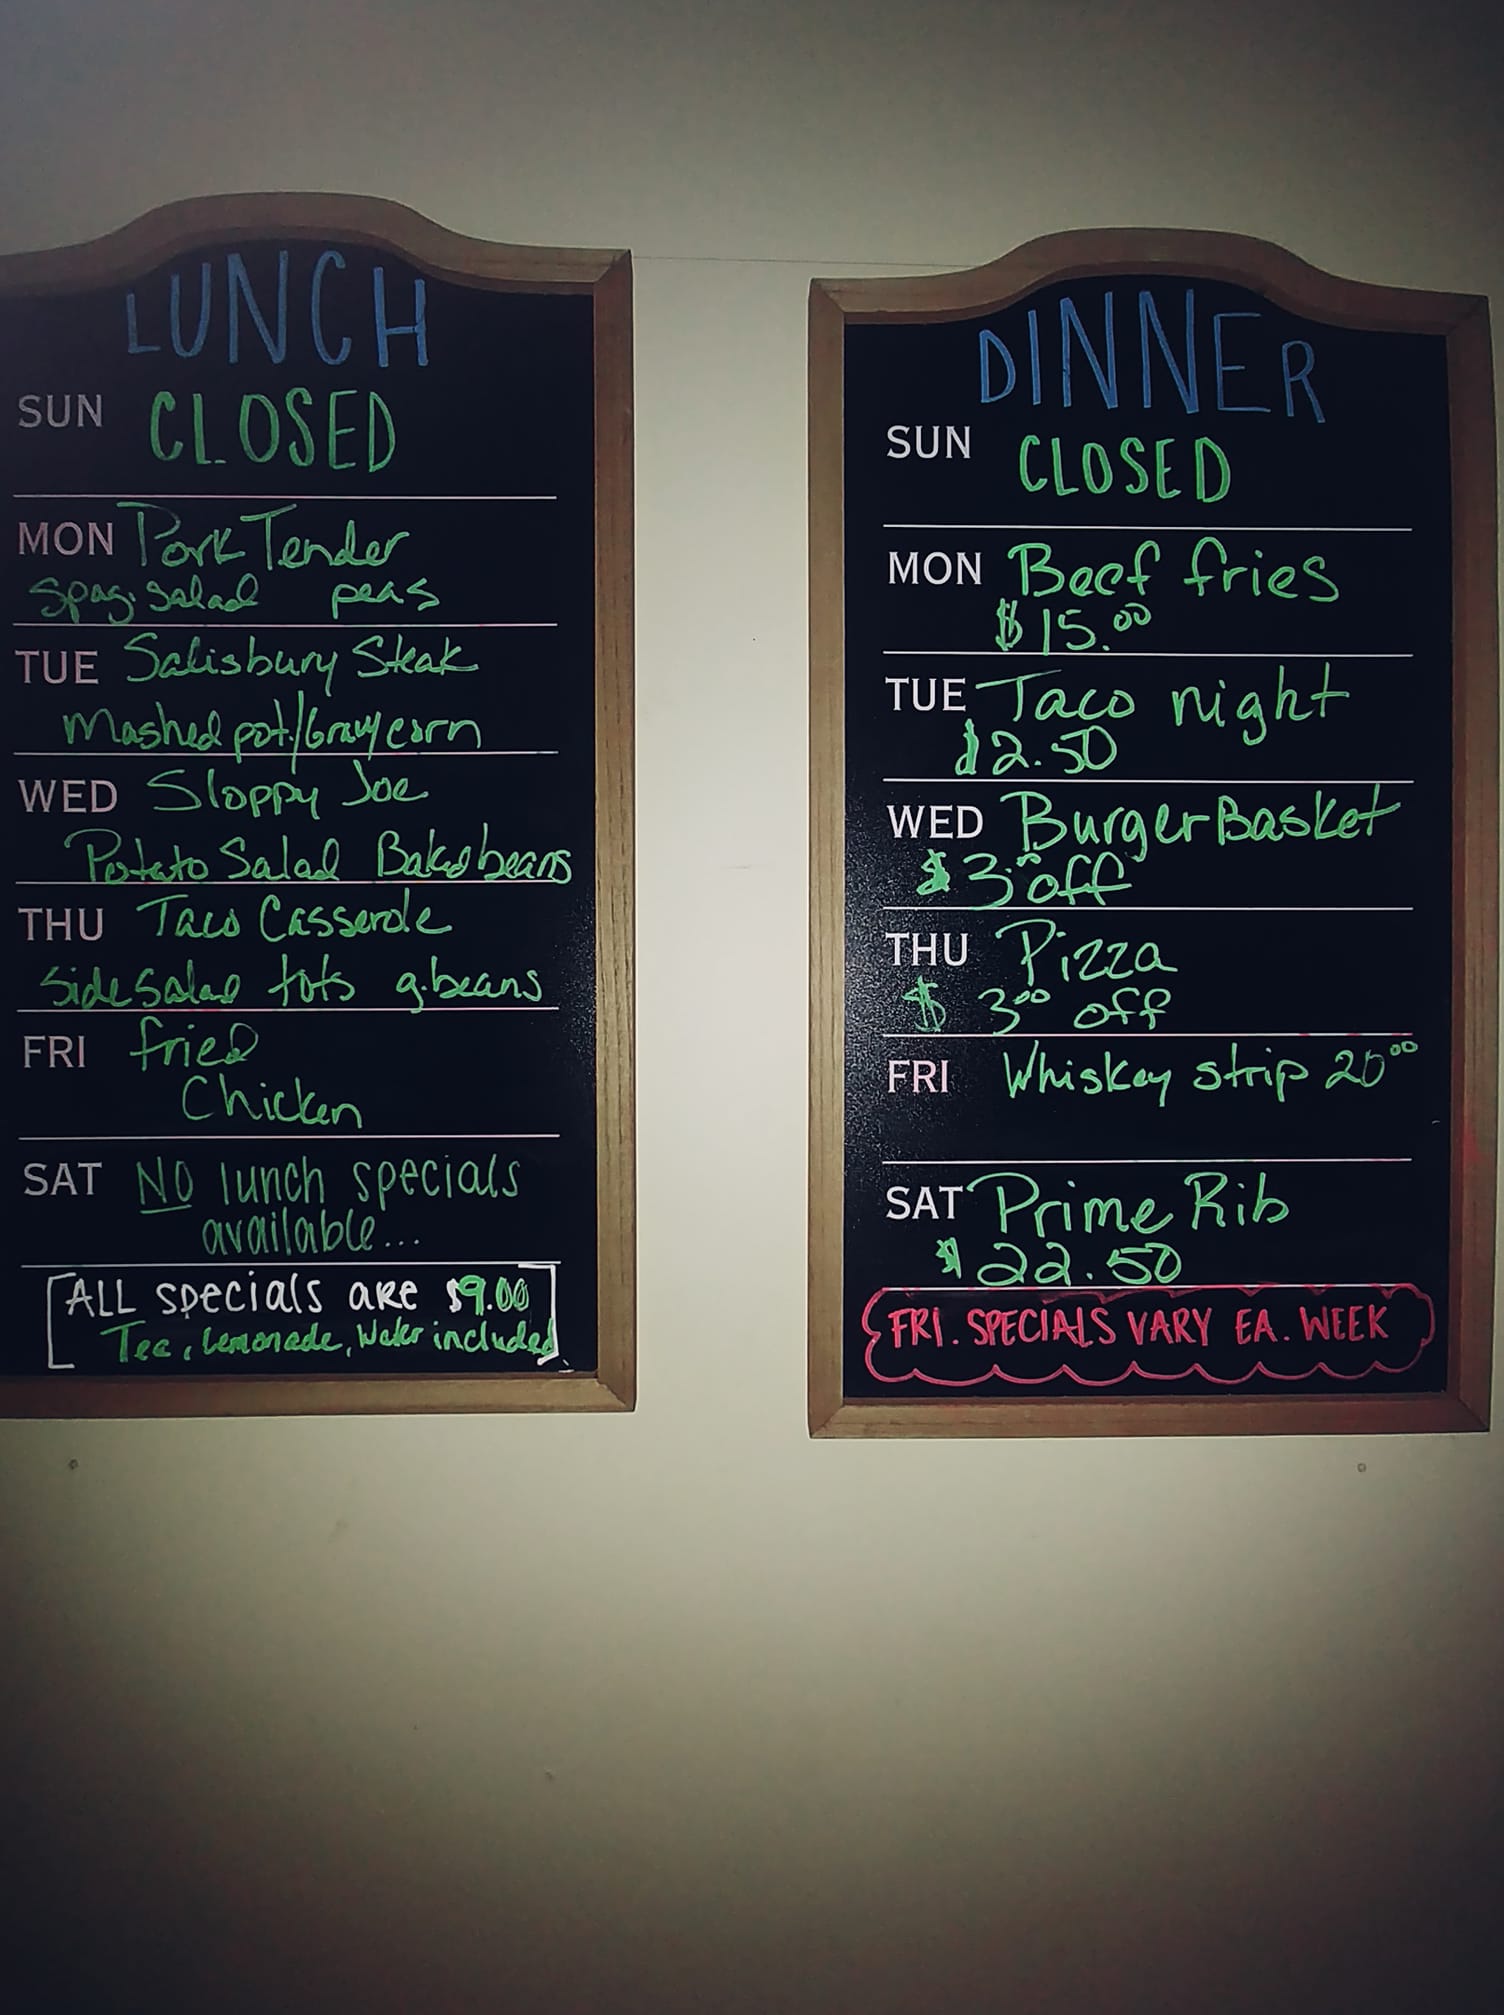 LUNCH
SUN CLOSED
MON Pork Tender
Spag. Salad peas
TUE Salisbury Steak
Mashed pot./Gravy corn
WED Sloppy Joe
Potato Salad Baked beans
THU Taco Casserole
Side Salad tots g.beans
FRI fried
Chicken
SAT NO lunch specials
available...
ALL specials are $9.00
Tea, Lemonade, Water included
DINNER
SUN CLOSED
MON Beef fries
$15.00
TUE Taco night
$2.50
WED Burger Basket
$3.00 off
THU Pizza
$3.00 off
FRI Whiskey strip 20.00
SAT Prime Rib
$22.50
FRI. SPECIALS VARY EA. WEEK